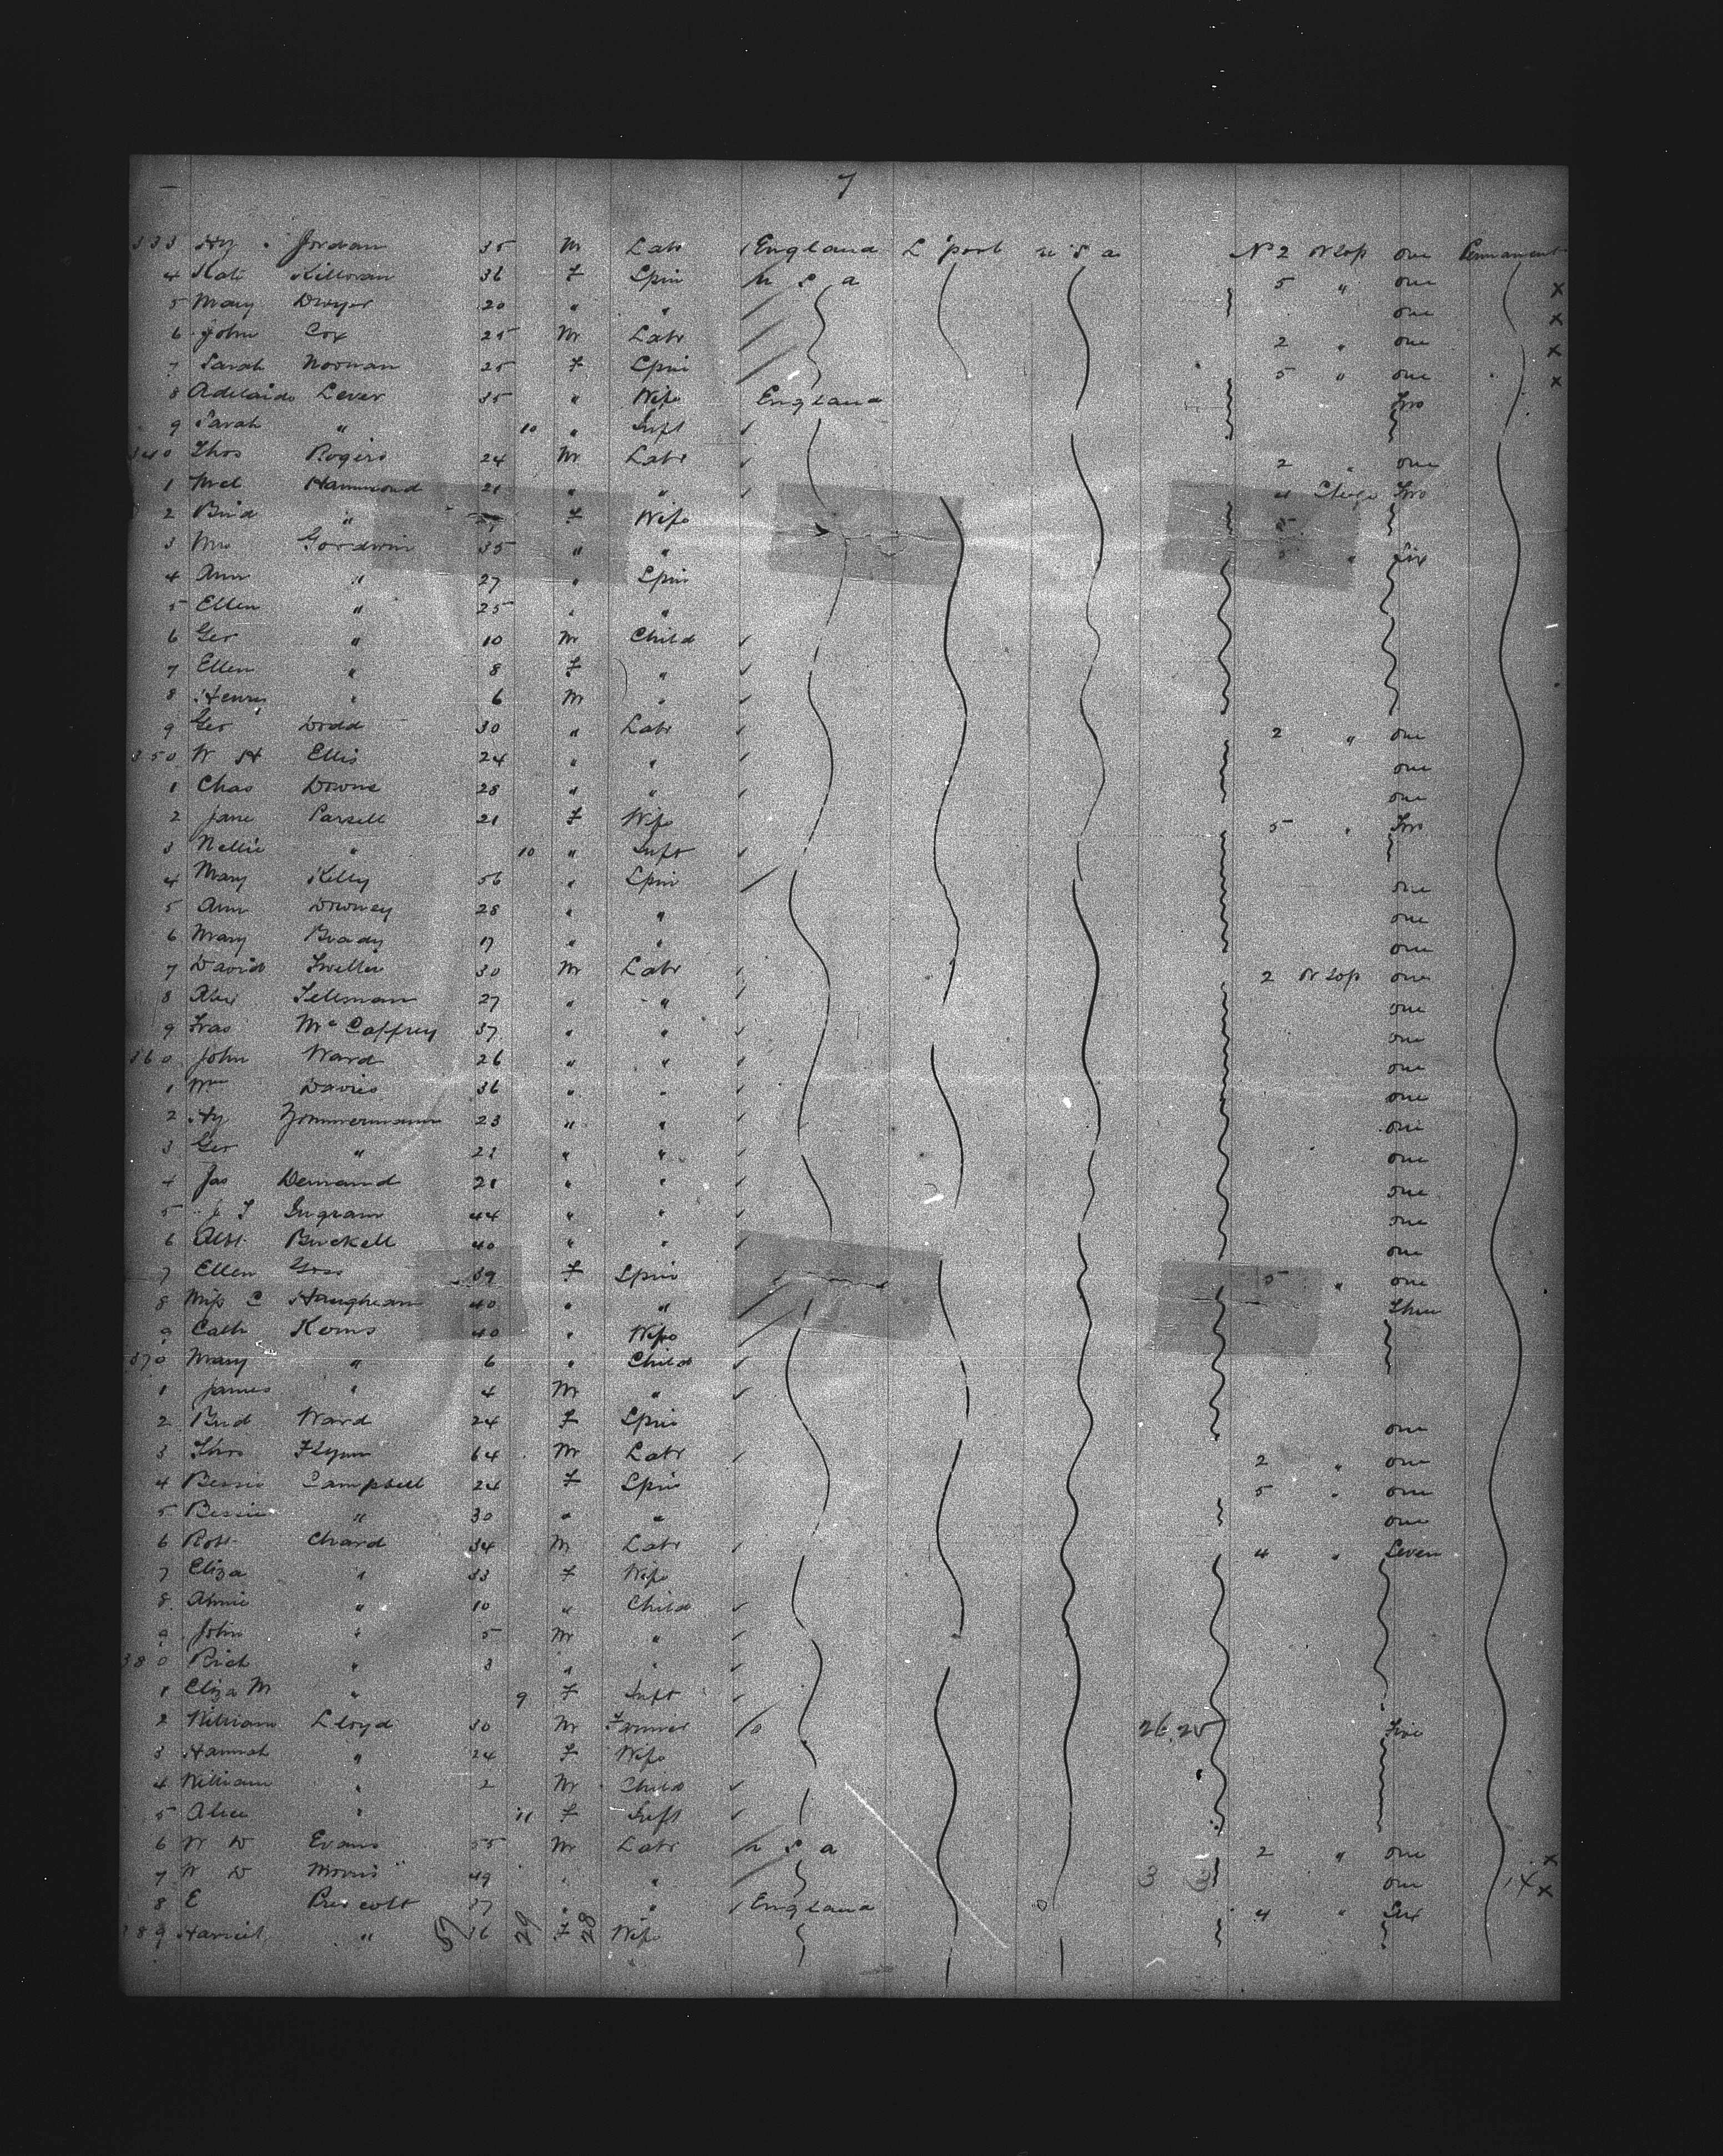 7
333 Hy Jordan 35 M Labr England L'pool U S a No 2 W Sop one Permanent
4 Kate Killoran 36 F Spin U S a 5 " one x
5 Mary Dwyer 20 " " one x
6 John Cox 25 M Labr 2 " one x
7 Sarah Noonan 25 F Spin 5 " one x
8 Adelaide Lever 35 " Wife England Two
9 Sarah " 10 " Inft
340 Thos Rogers 24 M Labr 2 " one
1 Hammond 21 " " 4 Two
2 Brid " F Wife
3 Mrs Goodwin 35 " " " Six
4 Ann " 27 " Spin
5 Ellen " 25 " "
6 Geo " 10 M Child
7 Ellen " 8 F "
8 Henry " 6 M "
9 Geo Dodd 30 " Labr 2 " one
350 W H Ellis 24 " " one
1 Chas Downs 28 " " one
2 Jane Parsell 21 F Wife 5 " Two
3 Nellie " 10 " Inft
4 Mary Kelly 56 " Spin one
5 Ann Downey 28 " " one
6 Mary Brady 17 " " one
7 David 30 M Labr 2 W Sop one
8 Alex Tellman 27 " " one
9 Fras McCaffrey 37 " " one
360 John Ward 26 " " one
1 Wm Davies 36 " " one
2 Hy Zommermann 23 " " one
3 Geo " 21 " " one
4 Jas Demand 21 " " one
5 J T Ingram 44 " " one
6 Albt Buckell 40 " " one
7 Ellen Goss 39 F Spin 5 " one
8 Miss C Haughean 40 " " Three
9 Cath Kerns 40 " Wife
370 Mary " 6 " Child
1 James " 4 M "
2 Brid Ward 24 F Spin one
3 Thos Flynn 64 M Labr 2 " one
4 Bessie Campbell 24 F Spin 5 " one
5 Bessie " 30 " " one
6 Robt Chard 34 M Labr 4 " Seven
7 Eliza " 33 F Wife
8 Annie " 10 " Child
9 John " 5 M "
380 Rich " 3 " "
1 Eliza M " 9 F Inft
2 William Lloyd 30 M Farmer 26.25 Five
3 Hannah " 24 F Wife
4 William " 2 M Child
5 Alice " 11 F Inft
6 W D Evans 55 M Labr U S a 2 " one x
7 W D Morris 49 " " 3 3 one x
8 E Prescott 37 " " England 4 " Six
389 Harriet " 36 F Wife
57 29 28